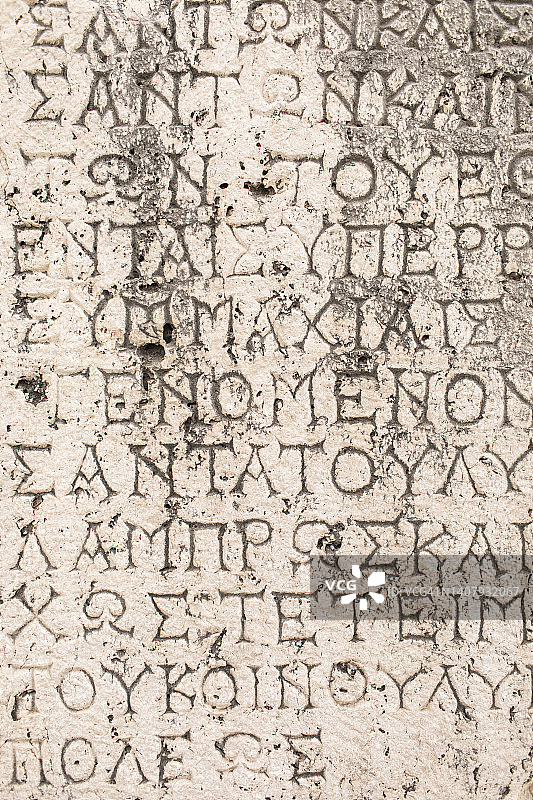 ΣΑΝΤΩΝΚΑΙΣ
ΣΑΝΤΩΝΚΑΙΕ
ΤΩΝΤΟΥΕΘ
ΕΝΤΑΙΣΥΠΕΡΡ
ΣΥΜΜΑΧΙΑΙΣ
ΓΕΝΟΜΕΝΟΝ
ΣΑΝΤΑΤΟΥΛΥ
ΛΑΜΠΡΩΣΚΑΙ
ΧΩΣΤΕΤΕΙΜ
ΤΟΥΚΟΙΝΟΥΛΥΚ
ΠΟΛΕΩΣ
VCG
gettyimages